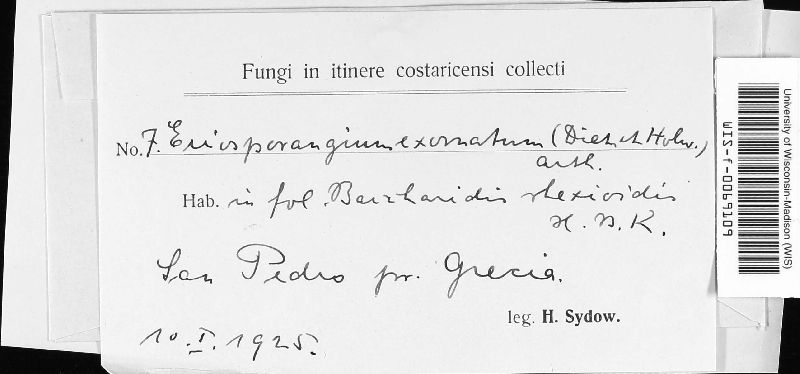 Fungi in itinere costaricensi collecti
No. 7. Eriosporangium exornatum (Diet. et Holw.)
Arth.
Hab. in fol. Baccharidis rhexioidis
H. B. K.
San Pedro pr. Grecia.
leg. H. Sydow.
10. I. 1925.
University of Wisconsin-Madison (WIS)
WIS-f-0069109